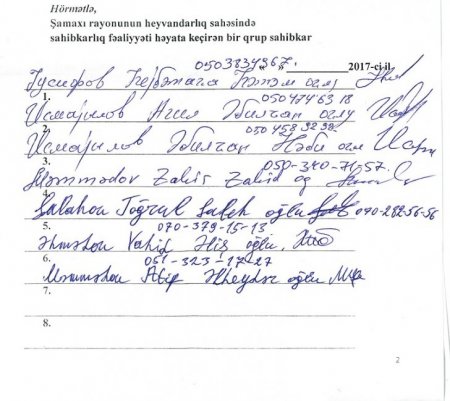 Hörmətlə,
Şamaxı rayonunun heyvandarlıq sahəsində
sahibkarlıq fəaliyyəti həyata keçirən bir qrup sahibkar
0503834367.
"___"________2017-ci il.
Јусифов оғлу
1.
0504744318
Исмајылов Агил Әбилһан оғлу
2.
050 458 32 38
Исмајылов Әбилһан Нәби оғлу
3.
050-340-71-57.
Məmmədov Zakir Zahid oğ
4.
Salahov Toğrul Saleh oğlu 070-282-56-56
5.
070-379-15-13
Əhmədov Vahid oğlu.
6.
051-323-17-27
Məmmədov Əlheydər oğlu
7.
8.
2